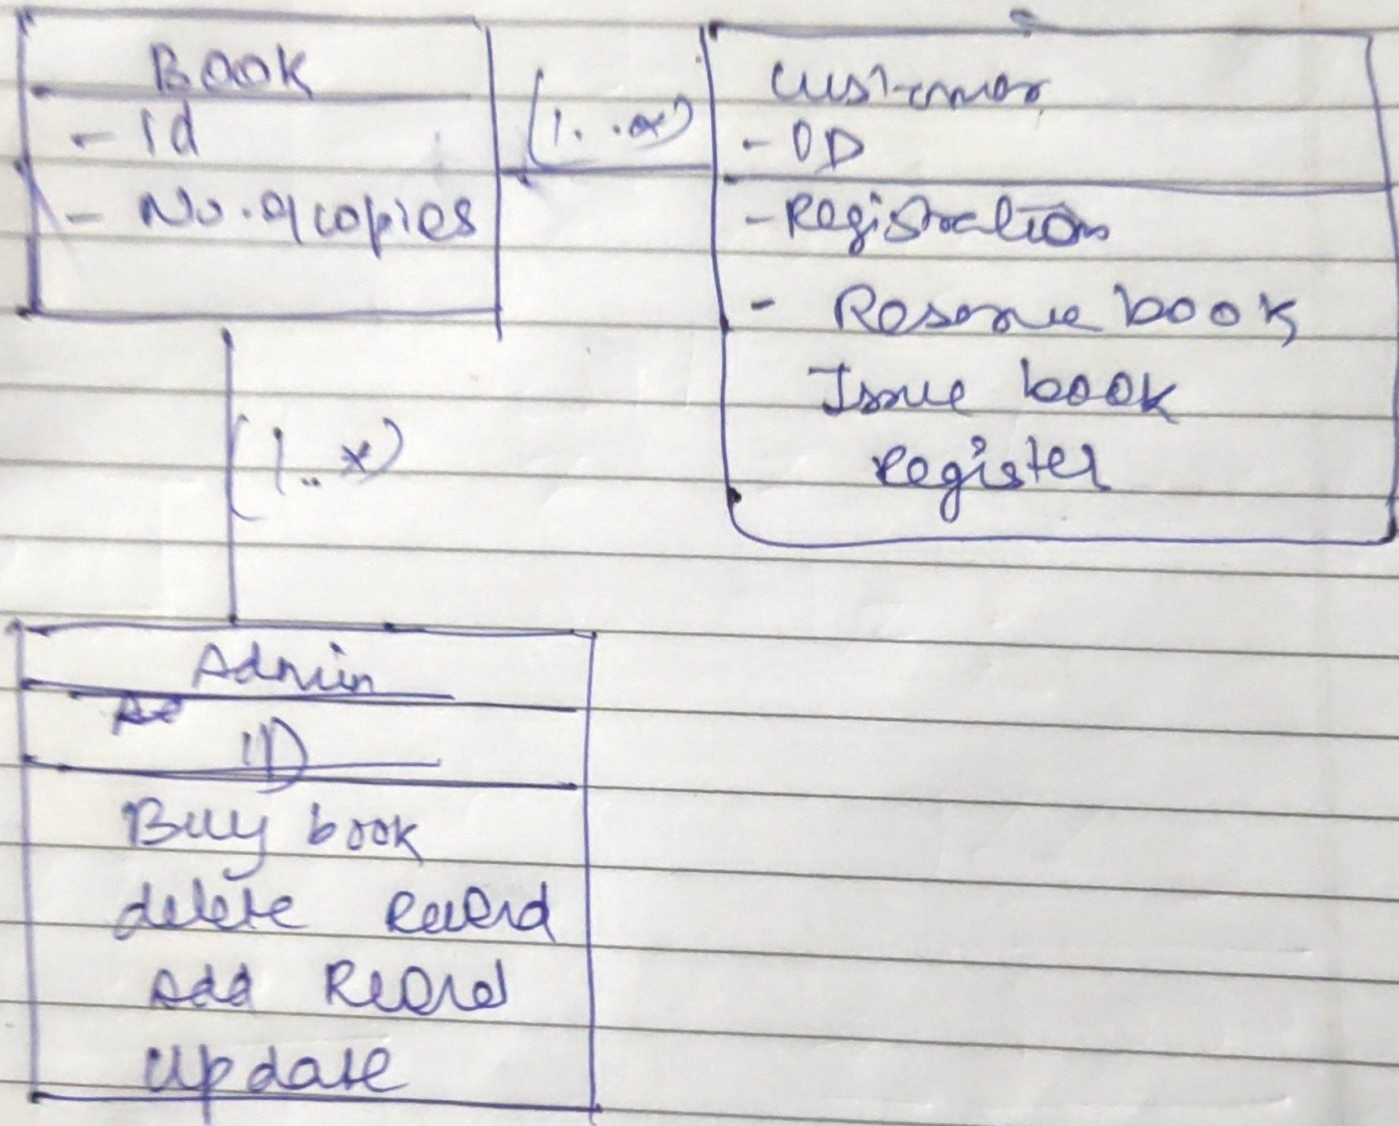 Book
- Id
- No. of copies
(1..*)
Customer
- ID
- Registration
- Reserve book
Issue book
register
(1..*)
Admin
ID
Buy book
delete Record
Add Record
update